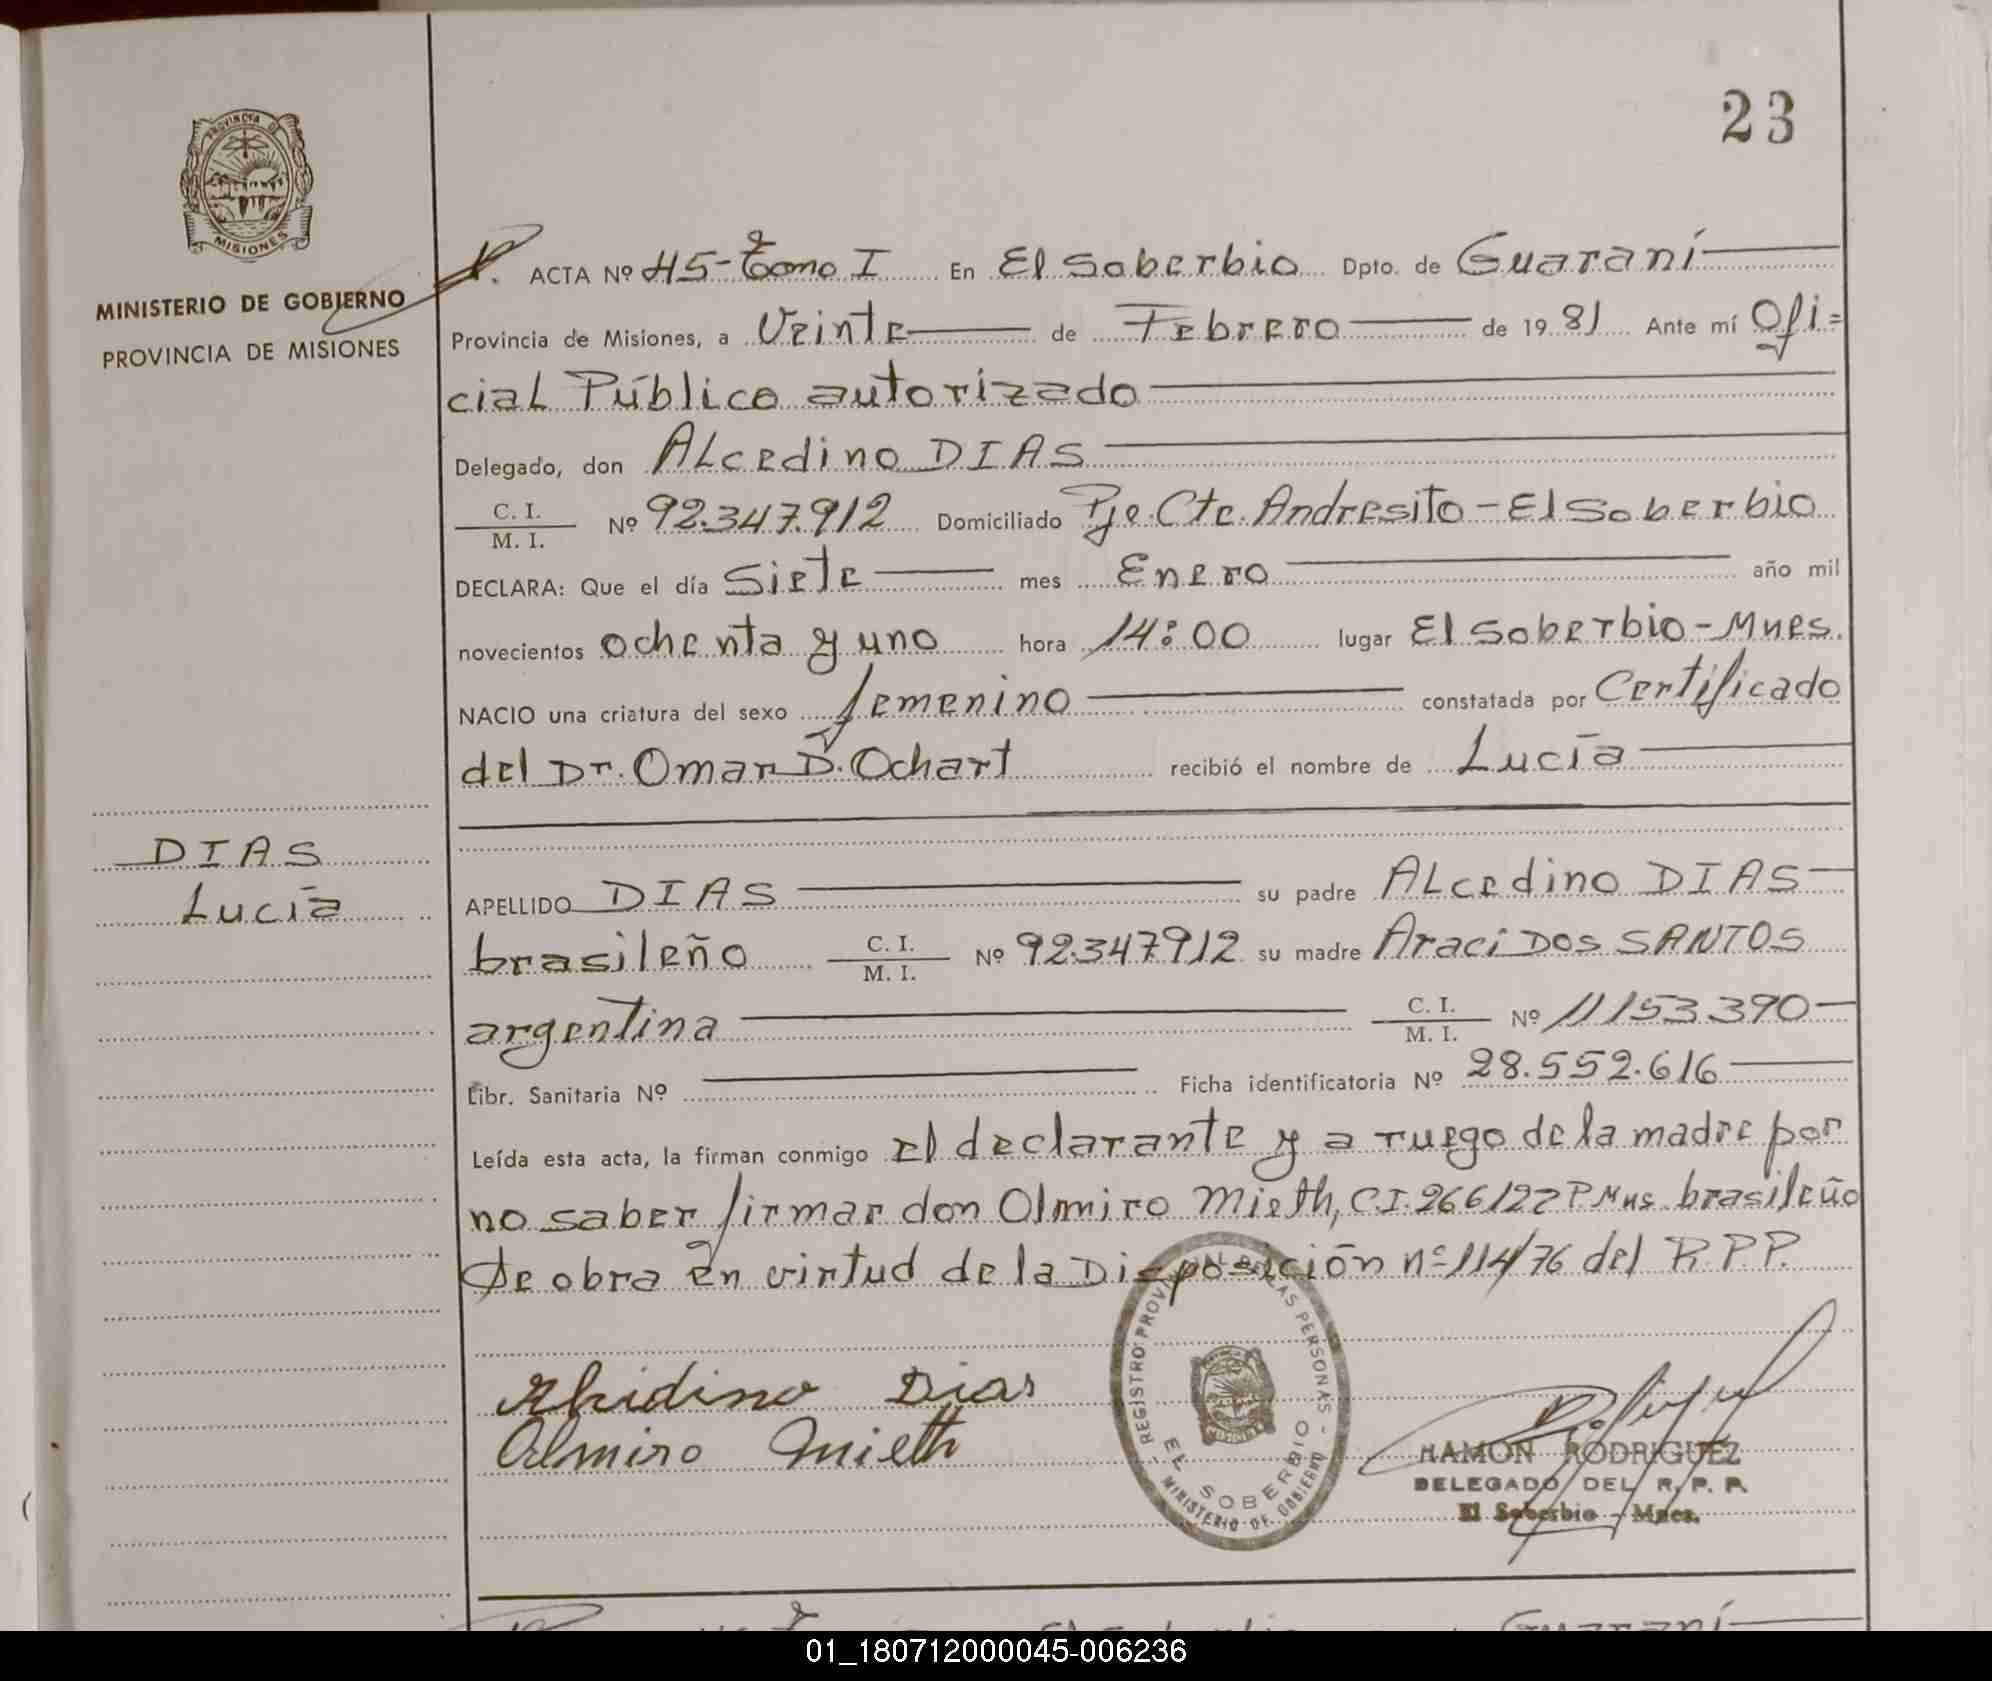 23
PROVINCIA DE
MISIONES
MINISTERIO DE GOBIERNO
PROVINCIA DE MISIONES
ACTA Nº 45-Tomo I En El Soberbio Dpto. de Guaraní
Provincia de Misiones, a Veinte de Febrero de 1981 Ante mí Ofi=
cial Público autorizado
Delegado, don ALcedino DIAS
C. I.
M. I. Nº 92.347.912 Domiciliado Pje Cte. Andresito - El Soberbio
DECLARA: Que el día Siete mes Enero año mil
novecientos ochenta y uno hora 14:00 lugar El Soberbio - Mnes.
NACIO una criatura del sexo femenino constatada por Certificado
del Dr. Omar D. Ochart recibió el nombre de Lucía
DIAS
Lucía
APELLIDO DIAS su padre ALcedino DIAS
brasileño C. I. M. I. Nº 92.347912 su madre Araci DOS SANTOS
argentina C. I. M. I. Nº 11153.390
Libr. Sanitaria Nº Ficha identificatoria Nº 28.552.616
Leída esta acta, la firman conmigo el declarante y a ruego de la madre por
no saber firmar don Olmiro Mieth, C.I. 266122 P. Mns. brasileño
Se obra en virtud de la Disposición nº 114/76 del R.P.P.
Dias
Olmiro Mieth
REGISTRO PROVINCIAL DE LAS PERSONAS -
EL SOBERBIO
MINISTERIO DE GOBIERNO
RAMON RODRIGUEZ
DELEGADO DEL R. P. P.
El Soberbio - Mnes.
Guaraní
01_180712000045-006236